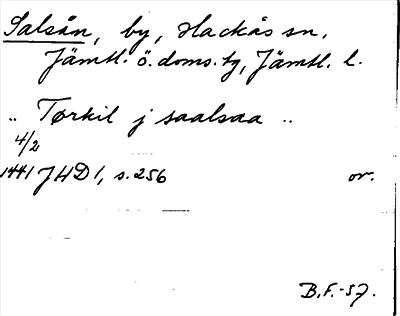 Salsån, by, Hackås sn,
Jämtl. ö. doms. tg, Jämtl. l.
.. Tørkil j saalsaa ..
4/2
1441 JHD 1, s. 256 or.
B.F.-57.